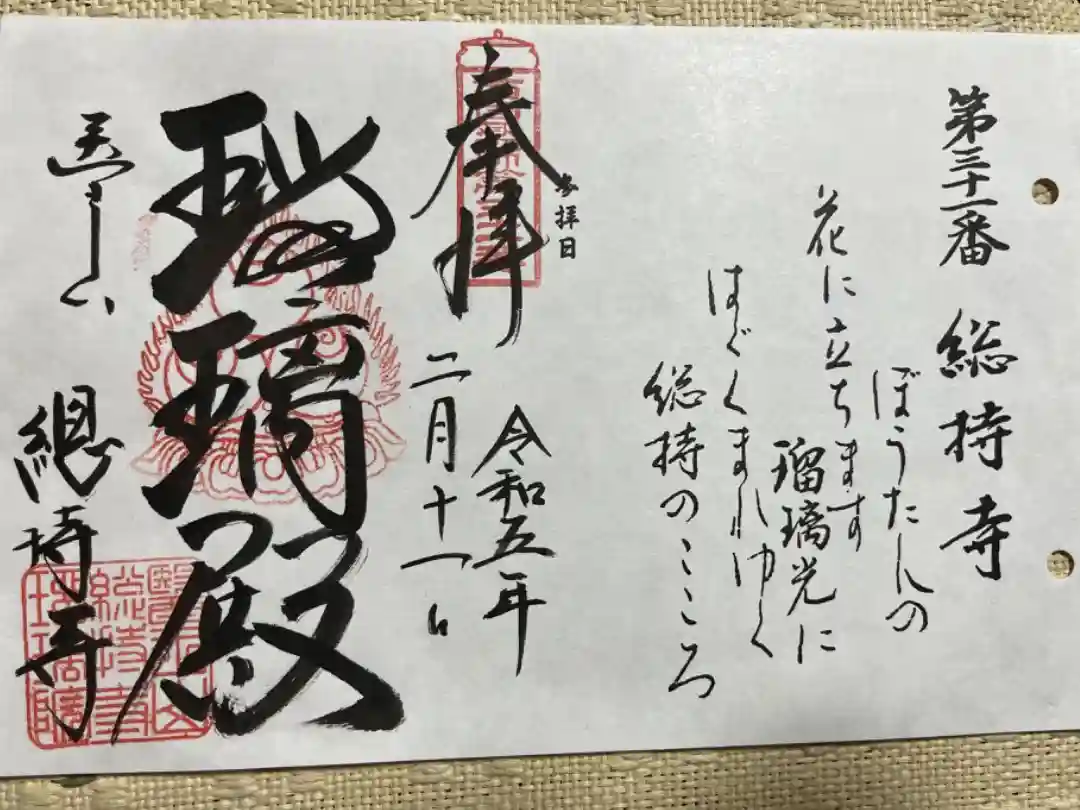 第三十一番 総持寺
ぼうたんの
花に立ちます
瑠璃光に
はぐくまれゆく
総持のこころ
奉拝
参拝日
令和五年
二月十一日
瑠璃殿
總持寺